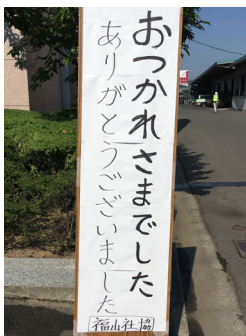 おつかれさまでした
ありがとうございました
福山社協